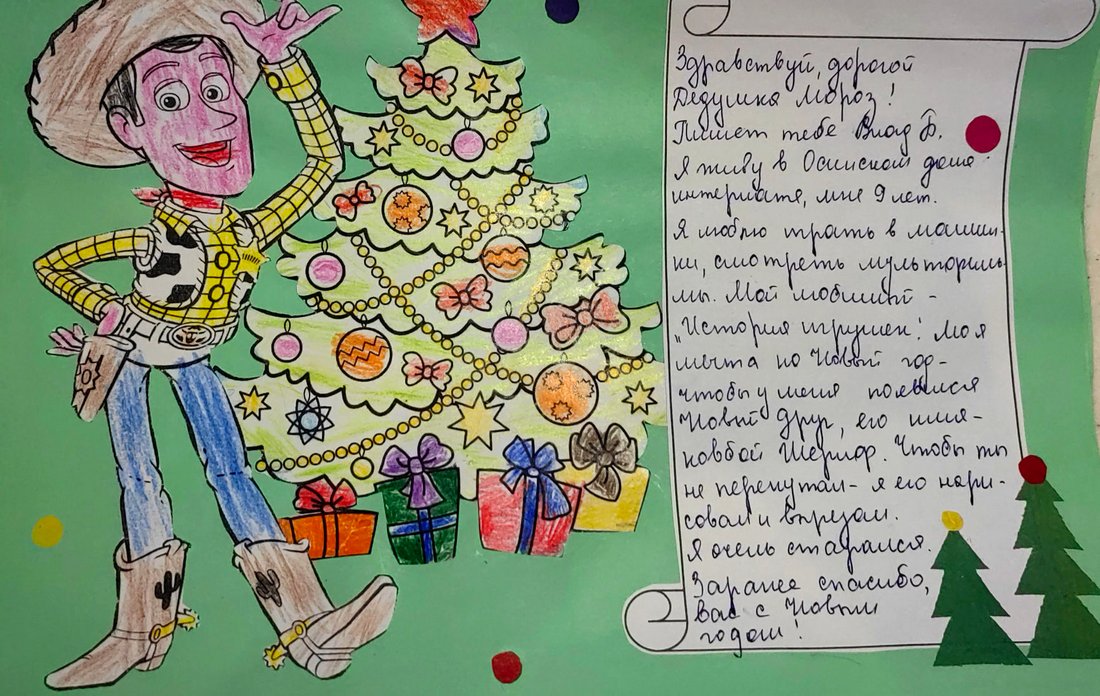 Здравствуй, дорогой
Дедушка Мороз!
Пишет тебе Влад Б.
Я живу в Осинском доме
интернате, мне 9 лет.
Я люблю играть в машин-
ки, смотреть мультфиль-
мы. Мой любимый -
"История игрушек! Моя
мечта на Новый год-
чтобы у меня появился
Новый друг, его имя-
ковбой Шериф. Чтобы ты
не перепутал - я его нари-
совал и вырезал.
Я очень старался.
Заранее спасибо,
Вас с Новым
годом!